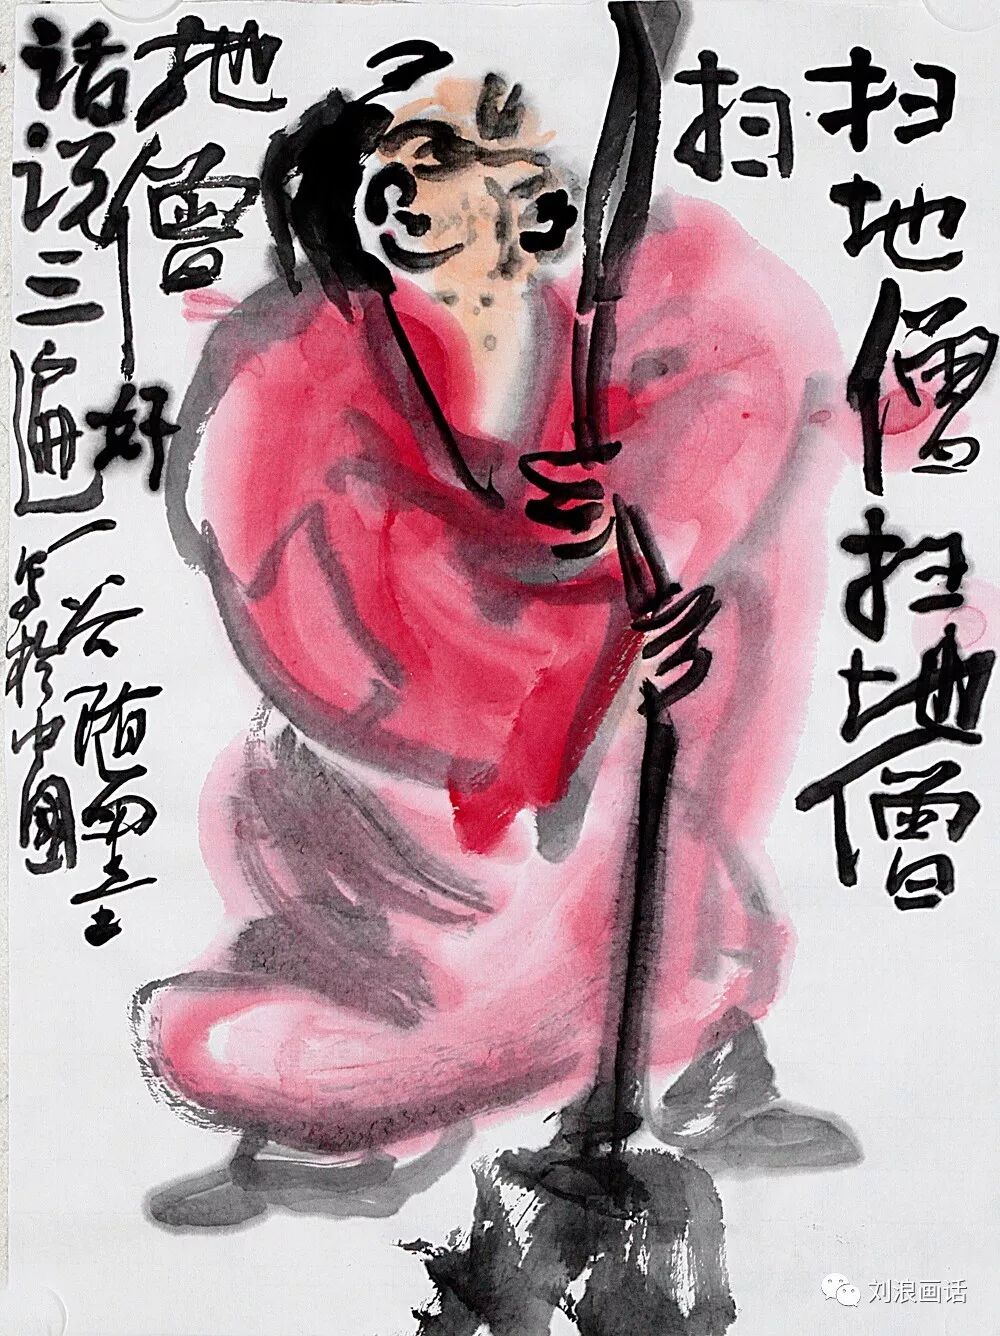 扫地僧扫地僧
扫
地僧好
话说三遍
一谷随墨
写於中國
刘浪画话